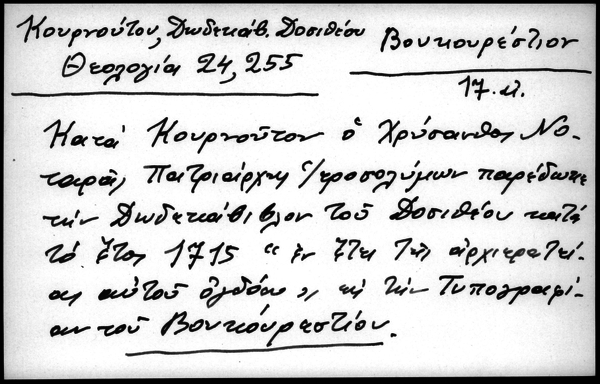 Κουρνούτου, Δωδεκάβ. Δοσιθέου
Θεολογία 24, 255
Βουκουρέστιον
17. αι.
Κατά Κουρνοῦτον ὁ Χρύσανθος Νο-
ταρᾶς Πατριάρχης Ἱεροσολύμων παρέδωκε
τήν Δωδεκάβιβλον τοῦ Δοσιθέου κατά
τό ἔτος 1715 "ἐν ἔτει τῆς ἀρχιερατεί-
ας αὐτοῦ ὀγδόῳ", εἰς τήν Τυπογραφί-
αν τοῦ Βουκουρεστίου.